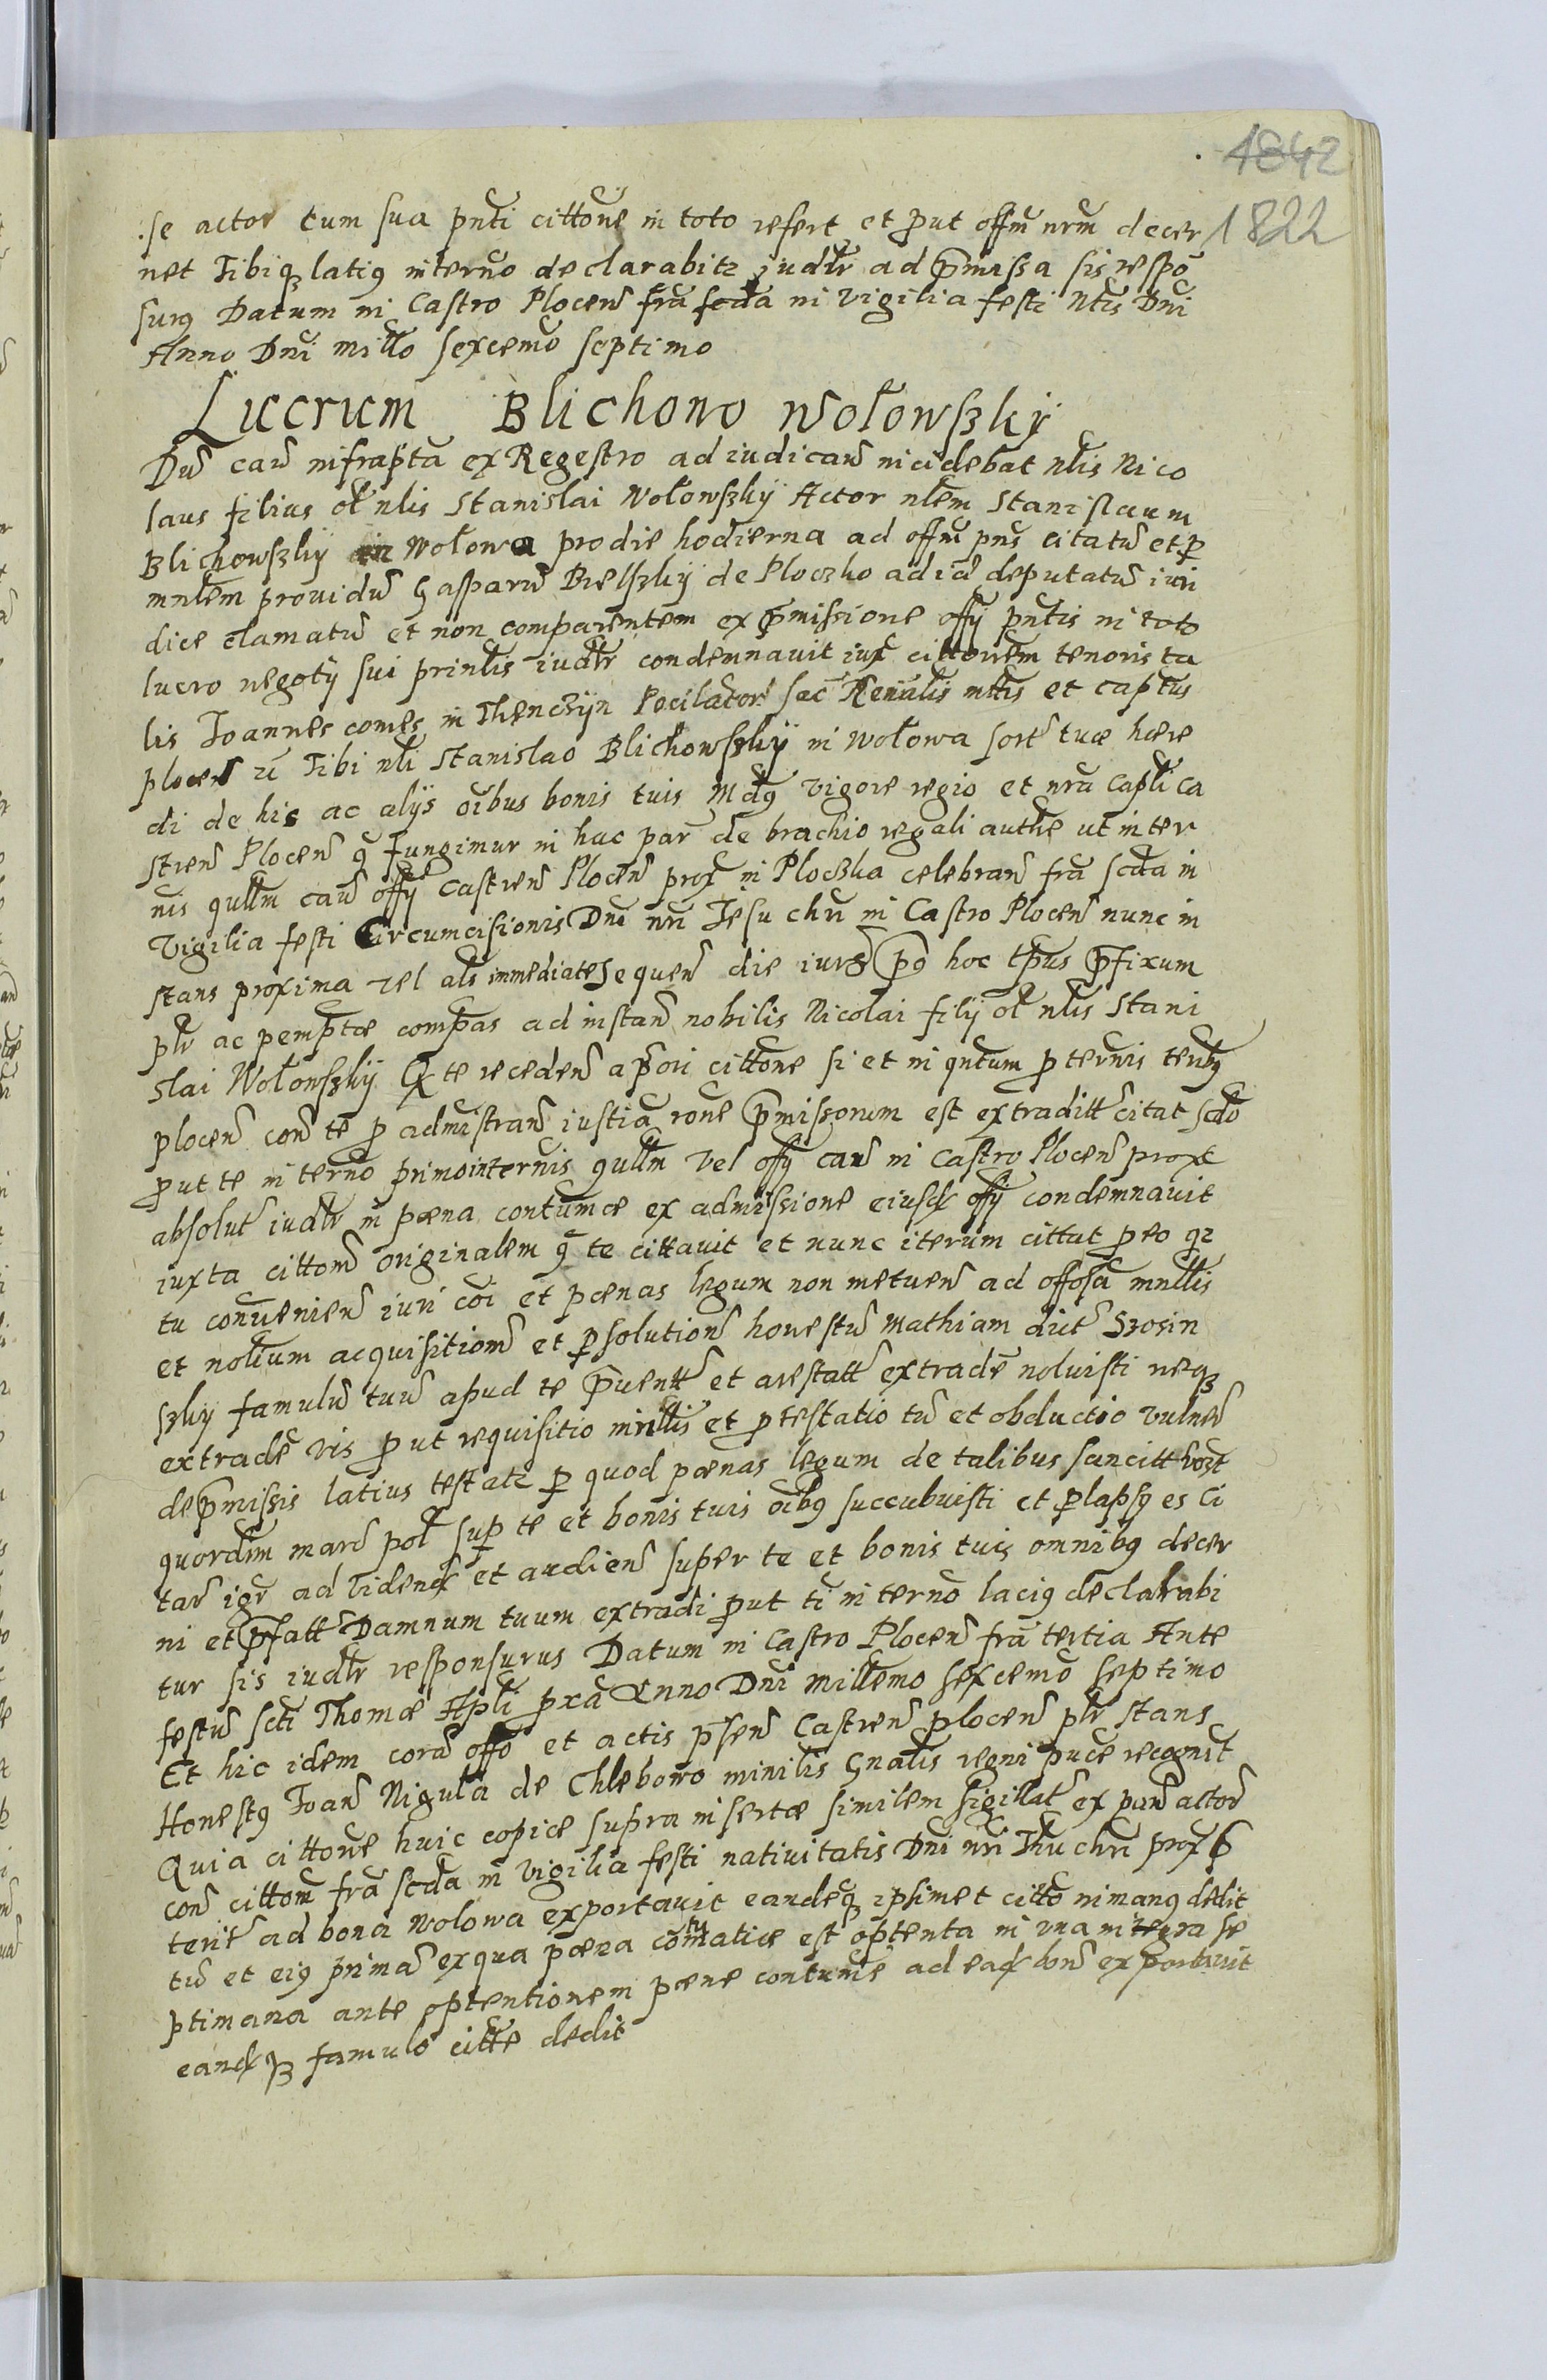 1842
1822
se actor tum sua pnti cittone in toto refert et put offm nrm decer
net Tibiq latiq interno declarabitr iudlr ad pmissa sis respo
surq Datum in Castro Plocen fra scda in vigilia festi Ntis Dni
Anno Dni millo sexcemo septimo
Lucrum Blichowo Wołowszky
Dum cau infrapta ex Regestro ad iudican incidebat nlis Nico
laus filius ol nlis Stanislai Wołowszky Actor nlem Stanislaum
Blichowszky in Wołowa pro die hodierna ad offm pns citatu et p
mnlem prouidu Gasparu Bielszky de Ploczko ad id deputatu iuri
dice clamatu et non comparentem ex pmissione offy pntis in toto
lucro negoty sui prinlis iudlr condemnauit iux cittonem tenoris ta
lis Joannes comes in Thenczyn Pocilator Sac Renialis mttis et captus
plocen zc Tibi nli Stanislao Blichowszky in Wołowa sort tuæ hære
di de his ac alys oibus bonis tuis Mdq vigore regio et nra capli ca
stren Plocen q fungimur in hac par de brachio regali authe ut in ter
nis qullm cau offy castren Plocen prox in Ploczka celebran fra scda in
Vigilia festi Circumcisionis Dni nri Jesu chri in Castro Plocen nunc in
stans proxima vel als immediate sequen die iurs pq hoc tpus pfixum
plr ac pemptæ compas ad instan nobilis Nicolai fily ol nlis Stani
slai Wołowszky Qx te receden a priori cittone si et in qntum p ternis terlbq
plocen con te p admistran iustia rone pmissorum est extraditt citat scdo
put te in terno primo in ternis qullm vel offy cau in Castro Plocen prox
absolut iudlr in pæna contumæ ex admissione eiusd offy condemnauit
iuxta cittom originalem q te cittauit et nunc iterum cittat p eo qz
tu conuenien iuri coi et pænas legum non metuen ad offosa mnllis
et nolium acquisitiom et psolution honestu Mathiam dict Szosin
szky famulu tuu apud te puentt et arestatt extrade noluisti neqz
extrade vis put requisitio mnllis et ptestatio tu et obductio vulner
de pmissis latius testatr p quod pænas legum de talibus sancitt
quordm maru pol sup te et bonis tuis oibq succubuisti et plapsq es Ci
tar igr ad vidend et audien super te et bonis tuis omnibq decer
ni et pfatt Damnum tuum extradi put ti in terno laciq declarabi
tur sis iudlr responsurus Datum in Castro Plocen fra tertia Ante
festu scti Thomæ Apli pxa Anno Dni Millemo sexcemo septimo
Et hic idem cora offo et actis psen Castren plocen plr stans
Honestq Joan Nigula de Chlebowo minilis Gnalis regni puce recognit
Quia cittone huic copiæ supra insertæ similem sigillat ex parn actor
con cittom fra scda in vigilia festi natiuitatis Dni nri Jhu chri prox
terit ad bona Wolowa exportauit eandeqz ipsimet citto in manq dedit
tu et eiq prima ex qua pæna contumatiæ est optenta in una integra se
ptimana ante optentionem pæne contume ad ead bon exportauit
eandqz famulo citte dedit